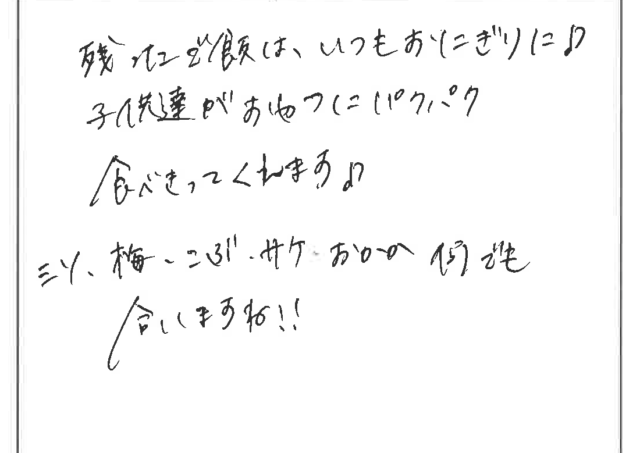 残ったご飯は、いつもおにぎりに♪
子供達がおやつにパクパク
食べきってくれます♪
ミソ、梅、こぶ、サケ おかか 何でも
合いますね!!